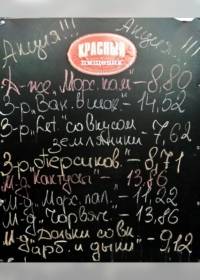 Акция!!! Акция!!!
КРАСНЫЙ
пищевик
А-же „Морс. кам" – 8,89
З-р „Ван. в шок" – 14,52
З-р „Ret" со вкусом
земляники 7,62
З-р „Персиков." – 8,71
М-д „Кактусы" – 13,86
М-д „Морс. пал." – 11,22
М-д „Червяч." – 13,86
М „Дольки со вк.
арб. и дыни" 9,12